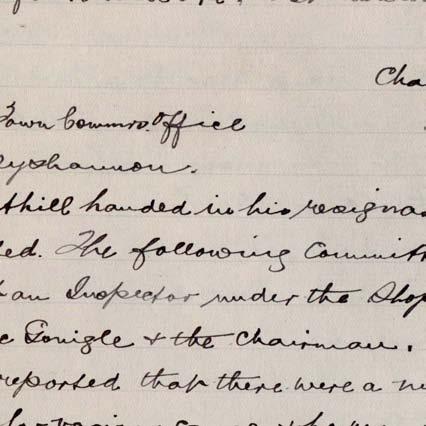 Cha
Town Commrs. Office
yshannon.
thill handed in his resigna
ed. The following Committ
an Inspector under the Shop
c Gonigle & the Chairman.
reported that there were a